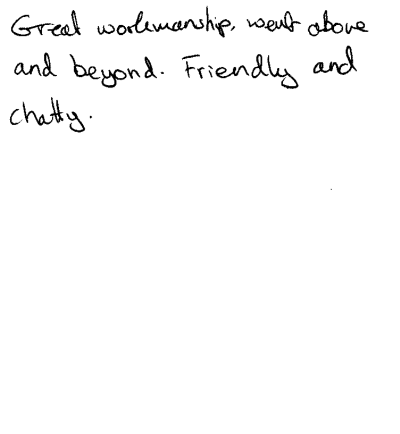 Great workmanship, went above
and beyond. Friendly and
chatty.